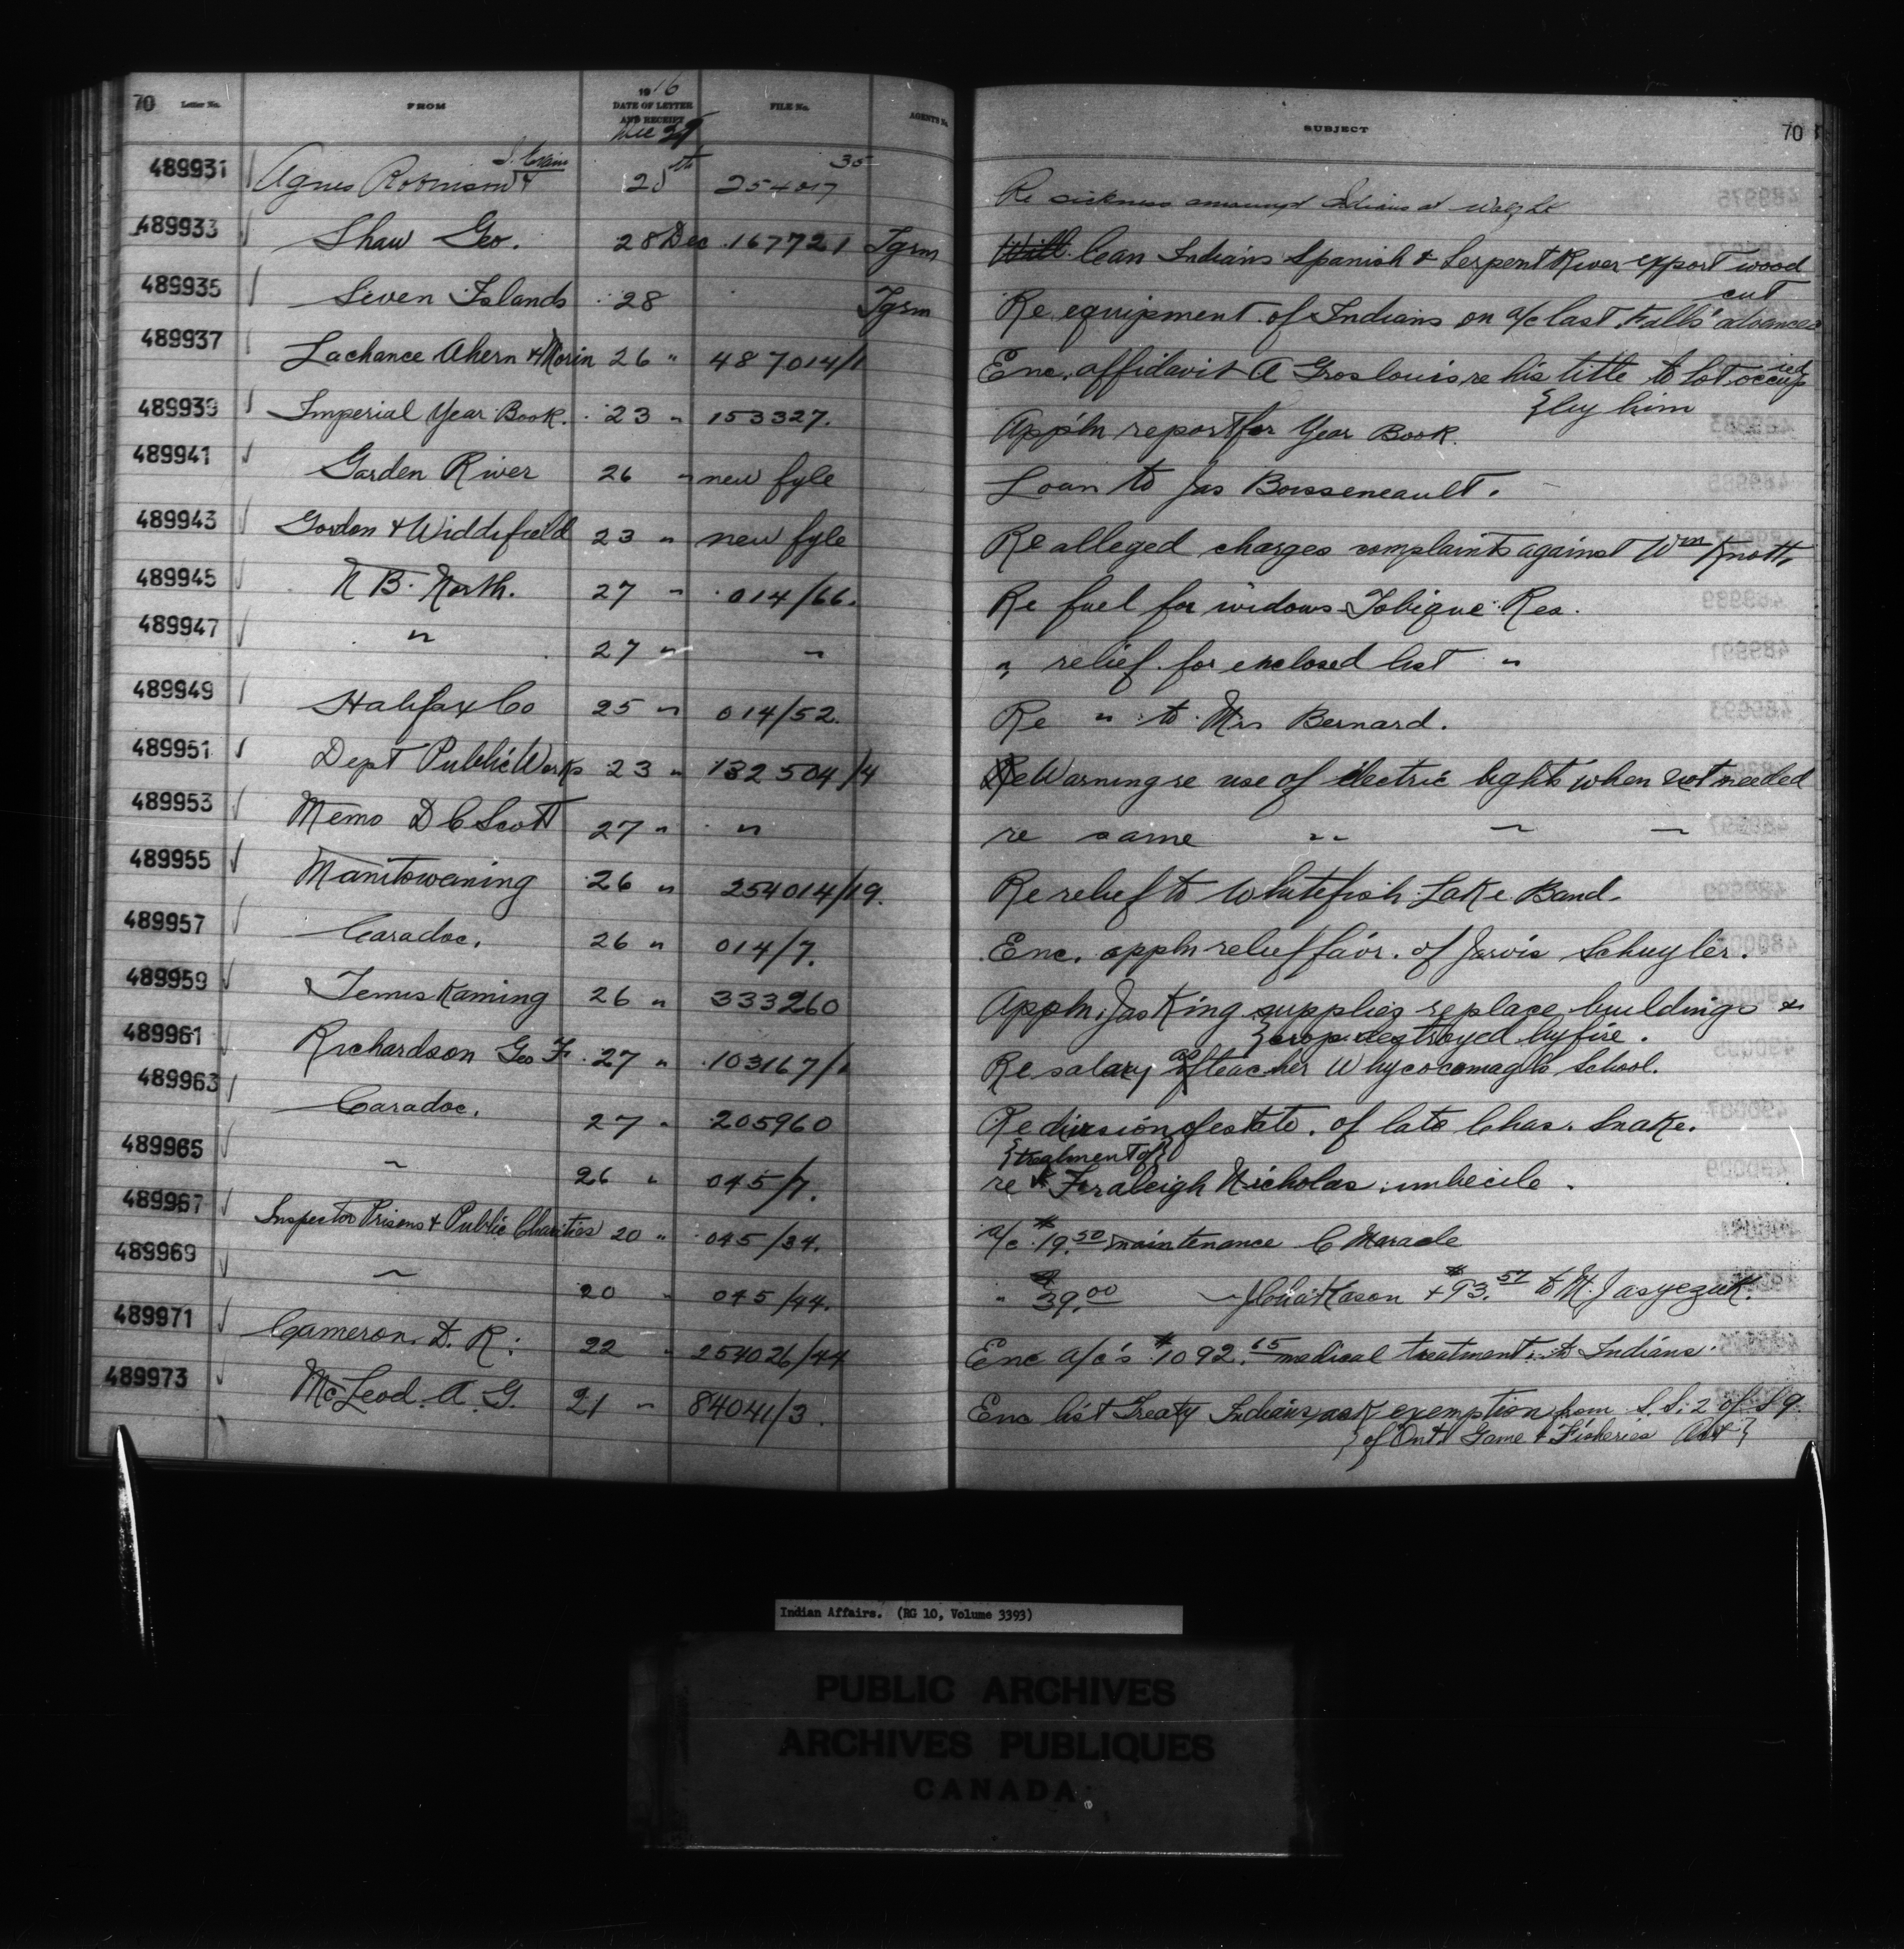 70 Letter No. FROM 1916 DATE OF LETTER AND RECEIPT FILE No. AGENT'S No. SUBJECT 70
Dec 29
489931 Agnes Robinson & 28th 254017 35 Re sickness amongst Indians at
489933 Shaw Geo. 28 Dec 167721 Tgrm Will Can Indians Spanish & Serpent River export wood
cut
489935 Seven Islands 28 Tgrm Re equipment of Indians on a/c last Falls' advances
489937 Lachance Ahern & Morin 26 " 487014/1 Enc. affidavit A Groslouis re his title to lot occupied
{by him
489939 Imperial Year Book. 23 " 153327. App'ln report for Year Book.
489941 Garden River 26 " new fyle Loan to Jas Boisseneault.
489943 Gordon & Widdifield 23 " new fyle Re alleged charges complaints against Wm Knott,
489945 N B. North. 27 " 014/66. Re fuel for widows Tobique Res.
489947 " 27 " " " relief for enclosed list "
489949 Halifax Co 25 " 014/52. Re " to Mrs Bernard.
489951 Dept Public Works 23 " 132504/4 Re Warning re use of electric lights when not needed
489953 Memo D C Scott 27 " " re same " " "
489955 Manitowaning 26 " 254014/19. Re relief to Whitefish Lake Band.
489957 Caradoc. 26 " 014/7. Enc. appln relief favr. of Jarvis Schuyler.
489959 Temiskaming 26 " 333260 Appln. Jas King supplies replace buildings &
{crop destroyed by fire.
489961 Richardson Geo F. 27 " 103167/1 Re salary as teacher Whycocomagh School.
489963 Caradoc. 27 " 205960 Re division of estate of late Chas. Snake.
{treatment of}
489965 " 26 " 045/7. re Faraleigh Nicholas imbecile.
489967 Inspector Prisons & Public Charities 20 " 045/34. a/c $19.50 maintenance C Maracle
489969 " 20 " 045/44. " $39.00 " Kason + $93.57 to M.
489971 Cameron. D. R. 22 " 254026/44 Enc a/c's $1092.65 medical treatment to Indians.
489973 McLeod. A. G. 21 " 84041/3. Enc list Treaty Indians ask exemption from S.S. 2 of S 9
{of Ont. Game & Fisheries Act}
Indian Affairs. (RG 10, Volume 3393)
PUBLIC ARCHIVES
ARCHIVES PUBLIQUES
CANADA